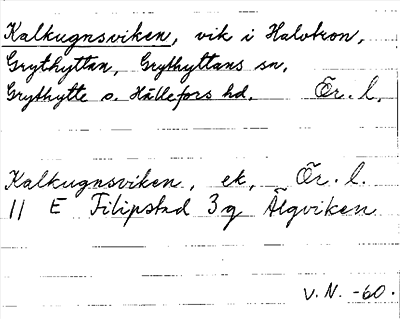 Kalkugnsviken, vik i Halvtron,
Grythyttan, Grythyttans sn,
Grythytte o. Hällefors hd. Ör. l.
Kalkugnsviken, ek, Ör. l.
11 E Filipstad 3g Älgviken
V. N. -60.